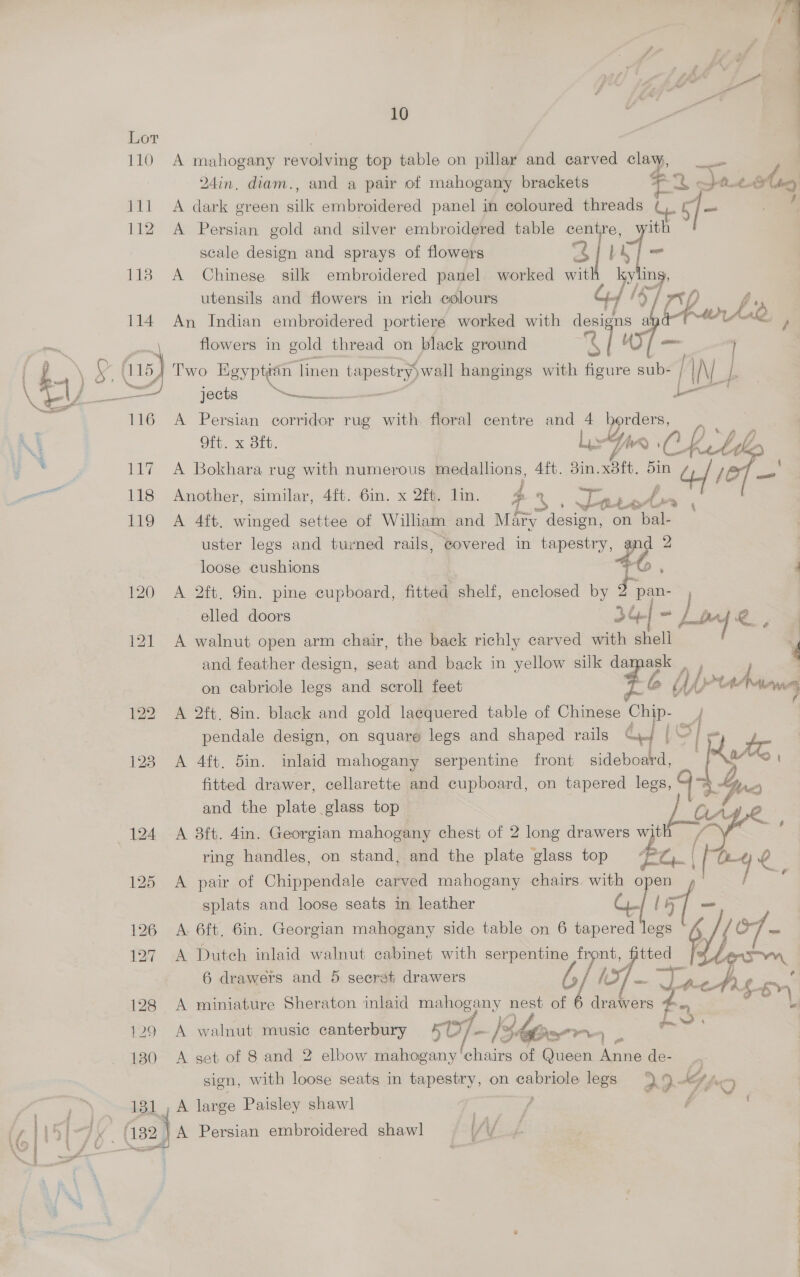 10
Lot
110 A mahogany revolving top table on pillar and carved claw,
24in. diam., and a pair of mahogany brackets £2
111 A dark green silk embroidered panel in coloured threads
112 A Persian gold and silver embroidered table centre, with
scale design and sprays of flowers 2/15/-
113 A Chinese silk embroidered panel worked with kyling,
utensils and flowers in rich colours 4/15/-
114 An Indian embroidered portiere worked with designs and
flowers in gold thread on black ground 2/10/-
115 Two Egyptian linen tapestry wall hangings with figure sub-
jects
116 A Persian corridor rug with floral centre and 4 borders,
9ft. x 3ft.
117 A Bokhara rug with numerous medallions, 4ft. 3in.x3ft. 5in 4/10/-
118 Another, similar, 4ft. 6in. x 2ft. 1in.
119 A 4ft. winged settee of William and Mary design, on bal-
uster legs and turned rails, covered in tapestry, and 2
loose cushions
120 A 2ft. 9in. pine cupboard, fitted shelf, enclosed by 2 pan-
elled doors 34/-
121 A walnut open arm chair, the back richly carved with shell
and feather design, seat and back in yellow silk damask
on cabriole legs and scroll feet
122 A 2ft. 8in. black and gold lacquered table of Chinese Chip-
pendale design, on square legs and shaped rails
123 A 4ft. 5in. inlaid mahogany serpentine front sideboard,
fitted drawer, cellarette and cupboard, on tapered legs,
and the plate glass top
124 A 3ft. 4in. Georgian mahogany chest of 2 long drawers with
ring handles, on stand, and the plate glass top
125 A pair of Chippendale carved mahogany chairs with open
splats and loose seats in leather 4/15/-
126 A 6ft. 6in. Georgian mahogany side table on 6 tapered legs 6/10/-
127 A Dutch inlaid walnut cabinet with serpentine front, fitted
6 drawers and 5 secret drawers 6/10/- Jackson
128 A miniature Sheraton inlaid mahogany nest of 6 drawers
129 A walnut music canterbury 50/-
130 A set of 8 and 2 elbow mahogany chairs of Queen Anne de-
sign, with loose seats in tapestry, on cabriole legs
131 A large Paisley shawl
132 A Persian embroidered shawl